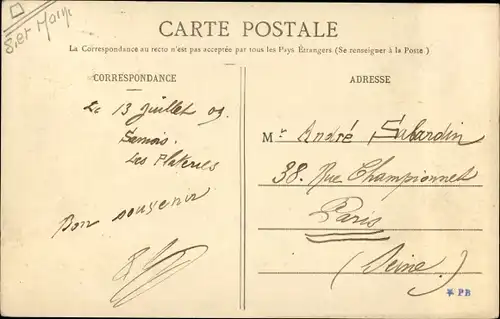 S. et Marne
CARTE POSTALE
La Correspondance au recto n'est pas acceptée par tous les Pays Étrangers (Se renseigner à la Poste.)
CORRESPONDANCE
Le 13 Juillet 09.
Samois.
Les Plâtreries
Bon souvenir
ADRESSE
Mr André Sabardin
38. Rue Championnet
Paris
(Seine.)
* PB